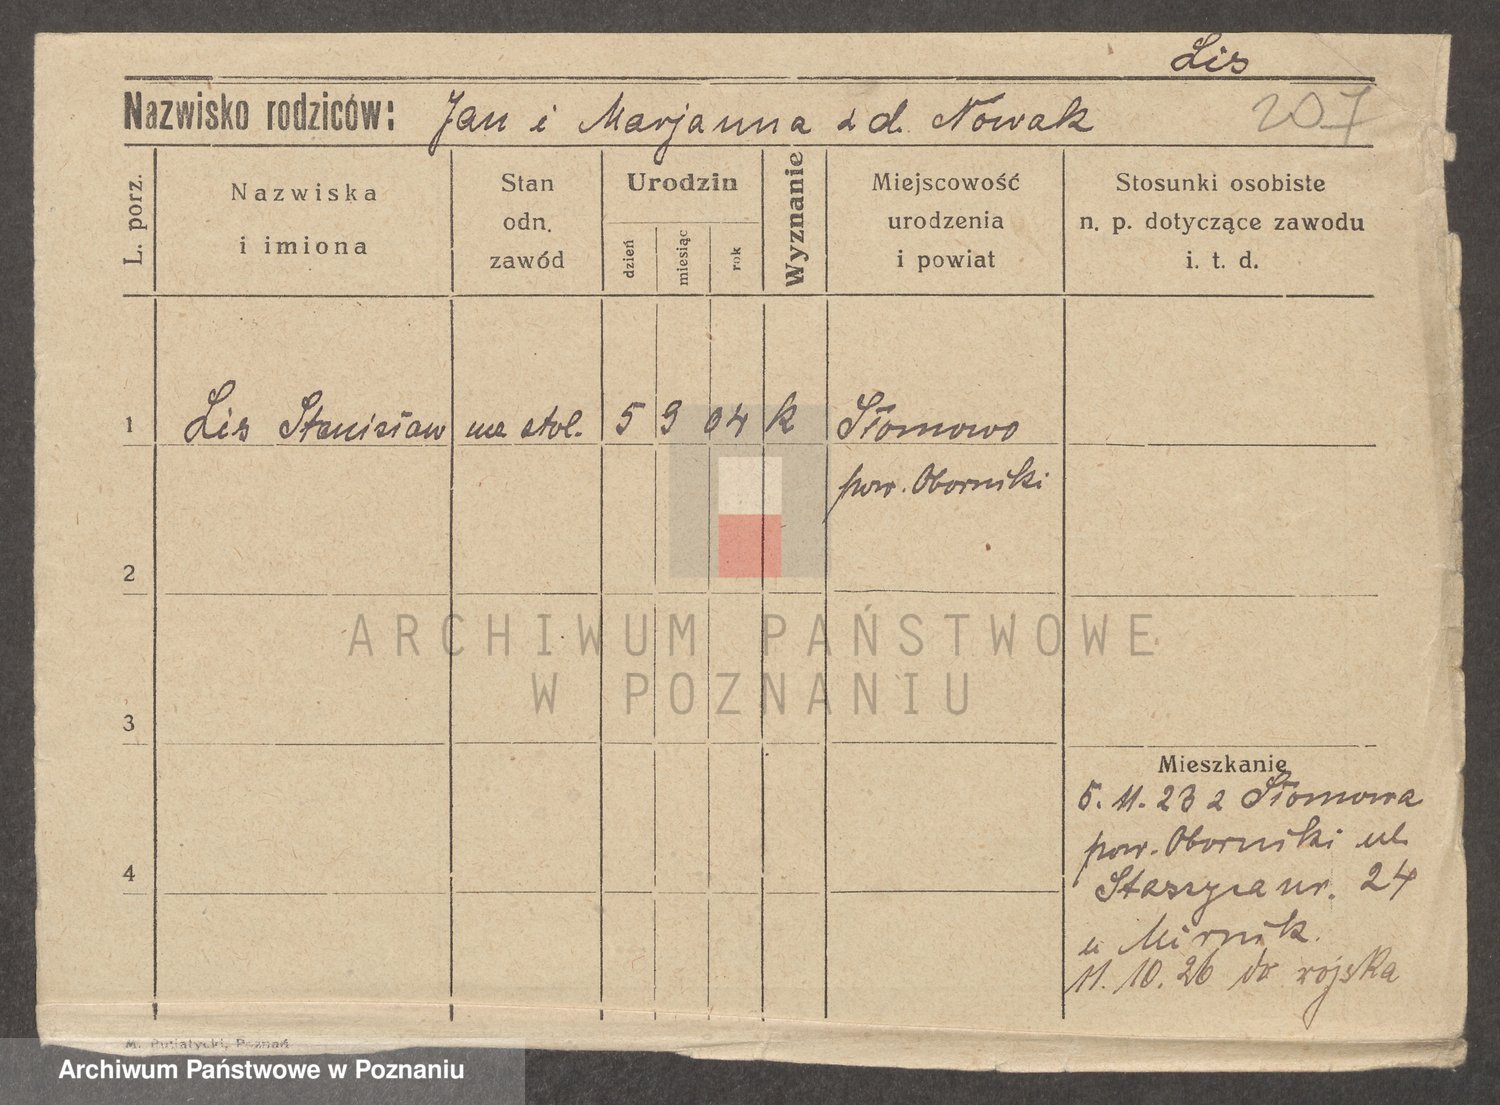 Lis
Nazwisko rodziców: Jan i Marjanna z d. Nowak
207
L. porz.
Nazwiska
i imiona
Stan
odn.
zawód
Urodzin
dzień
miesiąc
rok
Wyznanie
Miejscowość
urodzenia
i powiat
Stosunki osobiste
n. p. dotyczące zawodu
i. t. d.
1 Lis Stanisław stol. 5 9 04 k Słomowo
pow. Oborniki
2
3
4
ARCHIWUM PAŃSTWOWE
W POZNANIU
Mieszkanie
5. 11. 23 z Słomowa
pow. Oborniki ul.
Staszyca nr. 24
u Mirnik.
11. 10. 26 do wojska
M. Putiatycki, Poznań
Archiwum Państwowe w Poznaniu